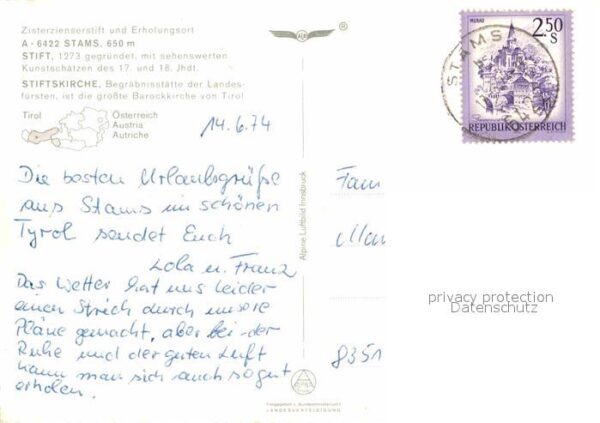 Zisterzienserstift und Erholungsort
A - 6422 STAMS, 650 m
STIFT, 1273 gegründet, mit sehenswerten
Kunstschätzen des 17. und 18. Jhdt.
STIFTSKIRCHE, Begräbnisstätte der Landes-
fürsten, ist die größte Barockkirche von Tirol
Tirol
Österreich
Austria
Autriche
14.6.74
Die besten Urlaubsgrüße
aus Stams im schönen
Tyrol sendet Euch
Lola u. Franz
Das Wetter hat uns leider
einen Strich durch unsere
Pläne gemacht, aber bei der
Ruhe und der guten Luft
kann man sich auch so gut
erholen.
Alpine Luftbild Innsbruck
®
MURAU
2.50
S
REPUBLIK ÖSTERREICH
STAMS
Fam
8351
LANDESVERTEIDIGUNG
privacy protection
Datenschutz